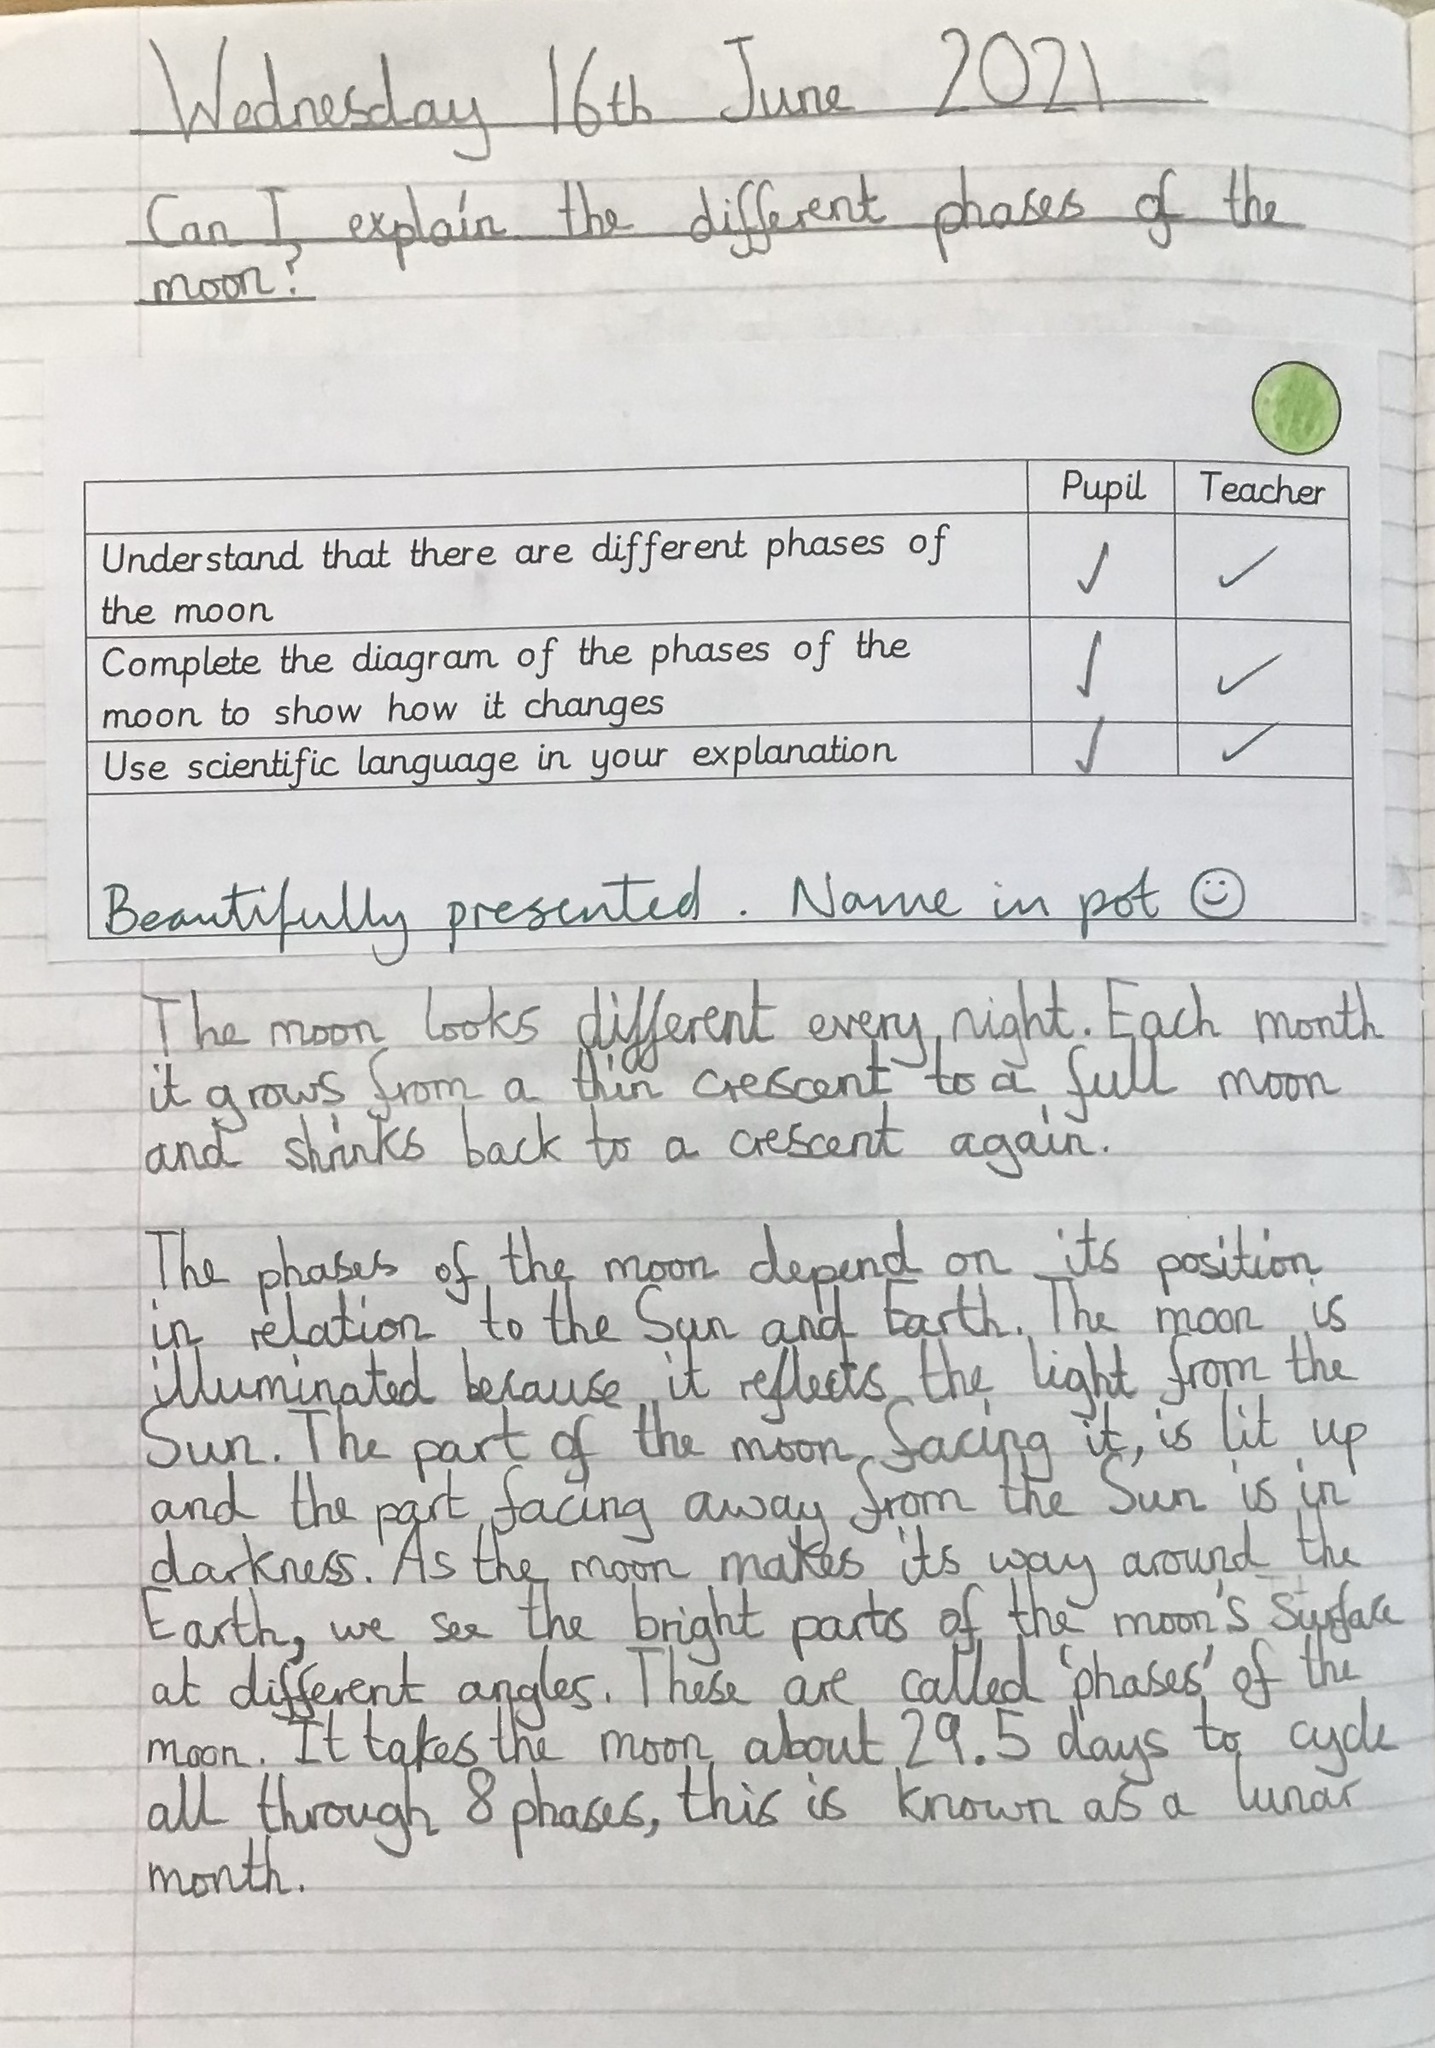 Wednesday 16th June 2021
Can I explain the different phases of the
moon?
Pupil Teacher
Understand that there are different phases of
the moon ✓ ✓
Complete the diagram of the phases of the
moon to show how it changes ✓ ✓
Use scientific language in your explanation ✓ ✓
Beautifully presented. Name in pot ☺
The moon looks different every night. Each month
it grows from a thin crescent to a full moon
and shrinks back to a crescent again.
The phases of the moon depend on its position
in relation to the Sun and Earth. The moon is
illuminated because it reflects the light from the
Sun. The part of the moon facing it, is lit up
and the part facing away from the Sun is in
darkness. As the moon makes its way around the
Earth, we see the bright parts of the moon's surface
at different angles. These are called 'phases' of the
moon. It takes the moon about 29.5 days to cycle
all through 8 phases, this is known as a lunar
month.